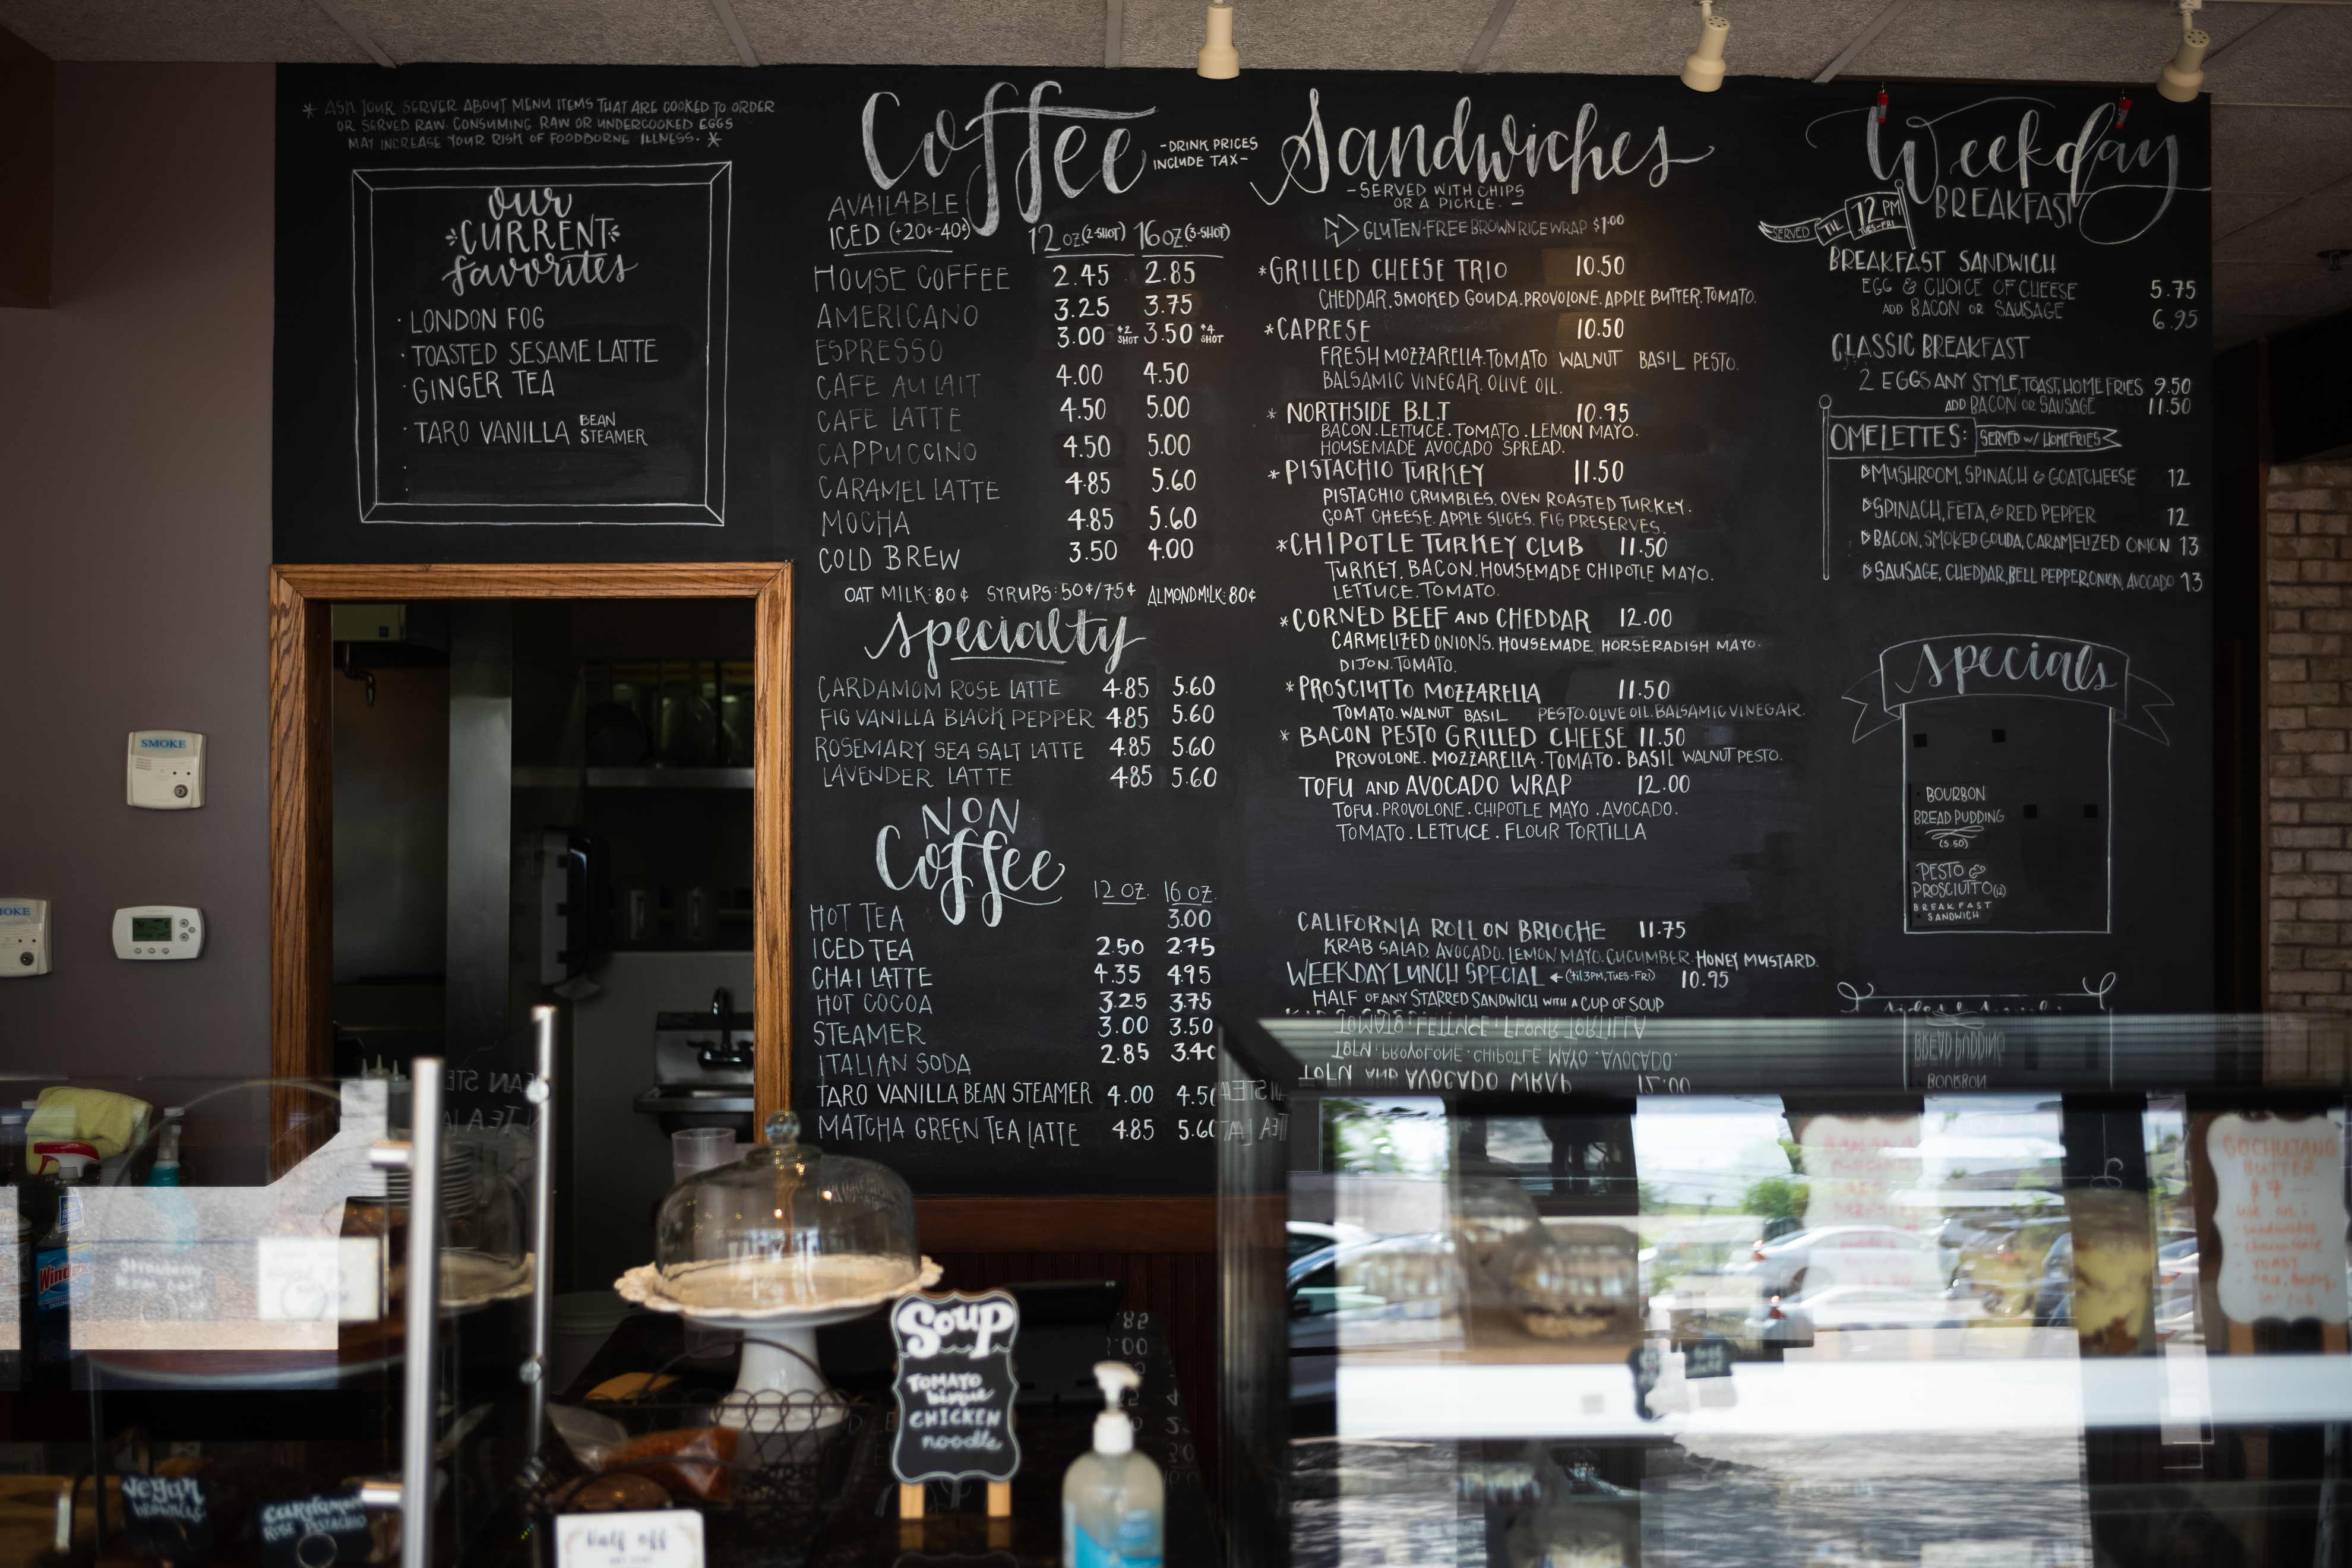 * ASK YOUR SERVER ABOUT MENU ITEMS THAT ARE COOKED TO ORDER
OR SERVED RAW. CONSUMING RAW OR UNDERCOOKED EGGS
MAY INCREASE YOUR RISK OF FOODBORNE ILLNESS. *
our
CURRENT
favorites
· LONDON FOG
· TOASTED SESAME LATTE
· GINGER TEA
· TARO VANILLA BEAN STEAMER
Coffee
-DRINK PRICES
INCLUDE TAX-
AVAILABLE
ICED (+20¢-40¢)
12 OZ (2-SHOT) 16 OZ (3-SHOT)
HOUSE COFFEE 2.45 2.85
AMERICANO 3.25 3.75
ESPRESSO 3.00 *2 SHOT 3.50 *4 SHOT
CAFE AU LAIT 4.00 4.50
CAFE LATTE 4.50 5.00
CAPPUCCINO 4.50 5.00
CARAMEL LATTE 4.85 5.60
MOCHA 4.85 5.60
COLD BREW 3.50 4.00
OAT MILK: 80¢ SYRUPS: 50¢/75¢ ALMONDMILK: 80¢
Specialty
CARDAMOM ROSE LATTE 4.85 5.60
FIG VANILLA BLACK PEPPER 4.85 5.60
ROSEMARY SEA SALT LATTE 4.85 5.60
LAVENDER LATTE 4.85 5.60
NON
Coffee
12 OZ. 16 OZ.
HOT TEA 3.00
ICED TEA 2.50 2.75
CHAI LATTE 4.35 4.95
HOT COCOA 3.25 3.75
STEAMER 3.00 3.50
ITALIAN SODA 2.85 3.40
TARO VANILLA BEAN STEAMER 4.00 4.50
MATCHA GREEN TEA LATTE 4.85 5.60
Sandwiches
-SERVED WITH CHIPS
OR A PICKLE.-
GLUTEN-FREE BROWN RICE WRAP $1.00
*GRILLED CHEESE TRIO 10.50
CHEDDAR. SMOKED GOUDA. PROVOLONE. APPLE BUTTER. TOMATO.
*CAPRESE 10.50
FRESH MOZZARELLA. TOMATO WALNUT BASIL PESTO.
BALSAMIC VINEGAR. OLIVE OIL.
* NORTHSIDE B.L.T 10.95
BACON. LETTUCE. TOMATO. LEMON MAYO.
HOUSEMADE AVOCADO SPREAD.
*PISTACHIO TURKEY 11.50
PISTACHIO CRUMBLES. OVEN ROASTED TURKEY.
GOAT CHEESE. APPLE SLICES. FIG PRESERVES.
*CHIPOTLE TURKEY CLUB 11.50
TURKEY. BACON. HOUSEMADE CHIPOTLE MAYO.
LETTUCE. TOMATO.
*CORNED BEEF AND CHEDDAR 12.00
CARMELIZED ONIONS. HOUSEMADE HORSERADISH MAYO.
DIJON. TOMATO.
*PROSCIUTTO MOZZARELLA 11.50
TOMATO. WALNUT BASIL PESTO. OLIVE OIL. BALSAMIC VINEGAR.
* BACON PESTO GRILLED CHEESE 11.50
PROVOLONE. MOZZARELLA. TOMATO. BASIL WALNUT PESTO.
TOFU AND AVOCADO WRAP 12.00
TOFU. PROVOLONE. CHIPOTLE MAYO. AVOCADO.
TOMATO. LETTUCE. FLOUR TORTILLA
CALIFORNIA ROLL ON BRIOCHE 11.75
KRAB SALAD. AVOCADO. LEMON MAYO. CUCUMBER. HONEY MUSTARD.
WEEKDAY LUNCH SPECIAL ← (til 3PM, TUES-FRI) 10.95
HALF OF ANY STARRED SANDWICH WITH A CUP OF SOUP
Weekday
BREAKFAST
SERVED TIL 12 PM TUES-FRI
BREAKFAST SANDWICH
EGG & CHOICE OF CHEESE 5.75
ADD BACON OR SAUSAGE 6.95
CLASSIC BREAKFAST
2 EGGS ANY STYLE, TOAST, HOME FRIES 9.50
ADD BACON OR SAUSAGE 11.50
OMELETTES: SERVED W/ HOMEFRIES
MUSHROOM, SPINACH & GOATCHEESE 12
SPINACH, FETA, & RED PEPPER 12
BACON, SMOKED GOUDA, CARAMELIZED ONION 13
SAUSAGE, CHEDDAR, BELL PEPPER, ONION, AVOCADO 13
Specials
BOURBON
BREAD PUDDING
(5.50)
PESTO &
PROSCIUTTO (12)
BREAKFAST
SANDWICH
SMOKE
SMOKE
Windex
Soup
TOMATO
bisque
CHICKEN
noodle
vegan
brownies
cardamom
ROSE PISTACHIO
half off
GOCHUJANG
BUTTER
$7